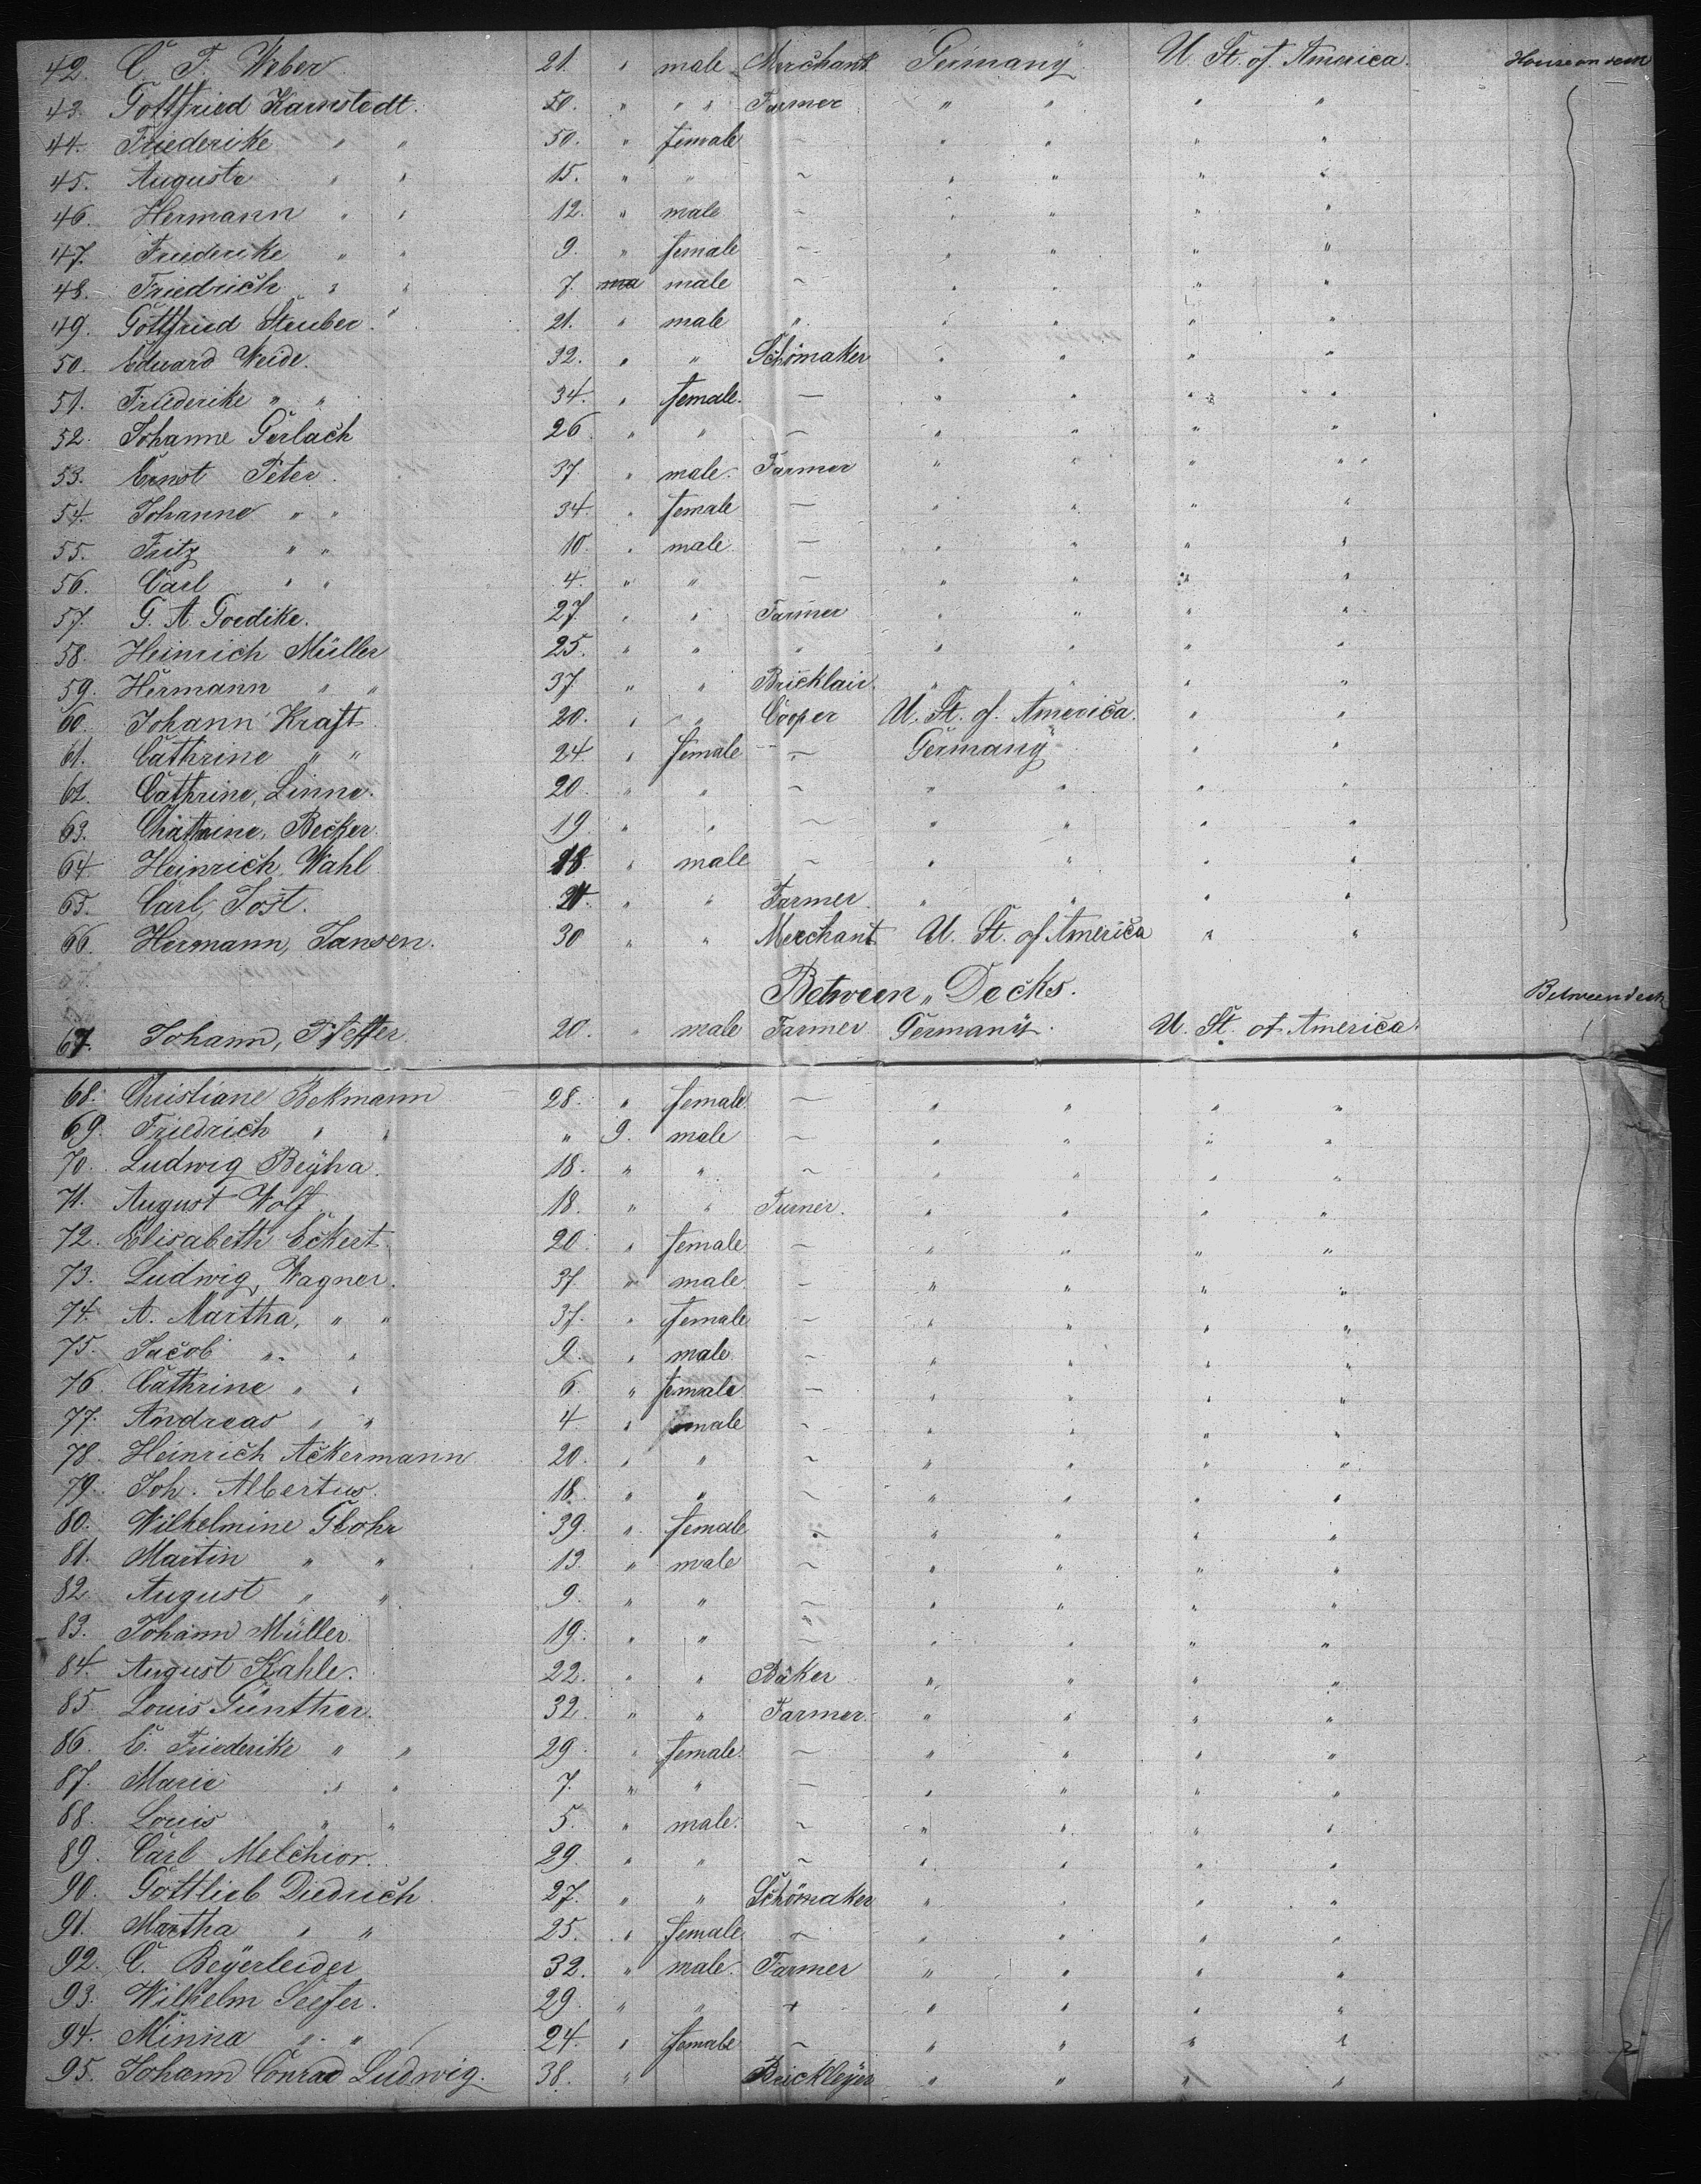 42. C. F. Weber 21. " male Merchant Germany U. St. of America. House on deck
43. Gottfried Karnstedt. 50. " " " Farmer " " " "
44. Friederike " " 50. " female ~ " " " "
45. Auguste " " 15. " " ~ " " " "
46. Hermann " " 12. " male ~ " " " "
47. Friederike " " 9. " female ~ " " " "
48. Friedrich " " 7. male ~ " " " "
49. Gottfried Steuber. " 21. " male " " " " "
50. Eduard Weide. 32. " " Schömaker " " " "
51. Friederike " " 34. " female. — " " " "
52. Johanne Gerlach 26 " " ~ " " " "
53. Ernst Peter. 37 " male. Farmer " " " "
54. Johanne " " 34. " female — " " " "
55. Fritz " " 10. " male — " " " "
56. Carl " " 4. " " ~ " " " "
57. G. A. Goedike. 27. " " Farmer " " " "
58. Heinrich Müller 25. " " " " " " "
59. Hermann " " 37 " " Bricklair. " " " "
60. Johann Kraft 20. " " Cooper U. St. of America. " "
61. Cathrine " " 24. " female ~ Germany " "
62. Cathrine, Linne. 20. " " ~ " " " "
63. Chathrine, Becker. 19. " " ~ " " " "
64. Heinrich, Wahl 18. " male ~ " " " "
65. Carl, Jost. 21. " " Farmer " " " "
66. Hermann, Jansen. 30 " " Merchant U. St. of America " "
Between " Decks. Between deck
67. Johann, Pfeffer. 20. " male Farmer Germany. U. St. of America.
68. Christiane Bekmann 28. " female ~ " " " "
69. Friedrich " " " 9. male ~ " " " "
70. Ludwig Beÿha. 18. " " ~ " " " "
71. August Wolf 18. " " Turner. " " " "
72. Elisabeth Eckert 20. " female ~ " " " "
73. Ludwig, Wagner. 37. " male ~ " " " "
74. A. Martha, " " 37. " female ~ " " " "
75. Jacob " " 9. " male ~ " " " "
76. Cathrine " " 6. " female ~ " " " "
77. Andreas " " 4. " male ~ " " " "
78. Heinrich Ackermann 20. " " ~ " " " "
79. Joh. Albertus. 18. " " ~ " " " "
80. Wilhelmine Glohr 39. " female ~ " " " "
81. Martin " " 13. " male ~ " " " "
82. August " " 9. " " ~ " " " "
83. Johann Müller. 19. " " ~ " " " "
84. August Kahle. 22. " " Bäker " " " "
85. Louis Günther. 32. " " Farmer. " " " "
86. E. Friederike " " 29. " female. ~ " " " "
87. Marie " " 7. " " ~ " " " "
88. Louis " " 5. " male. ~ " " " "
89. Carl Melchior. 29. " " ~ " " " "
90. Gottlieb Diedrich 27. " " Schömaker " " " "
91. Martha " " 25. " female ~ " " " "
92. C. Beÿerleider 32. " male. Farmer " " " "
93. Wilhelm Seefer. 29. " " ~ " " " "
94. Minna " " 24. " female ~ " " " "
95. Johann Conrad Ludwig. 38. " Brickleÿer " " " "